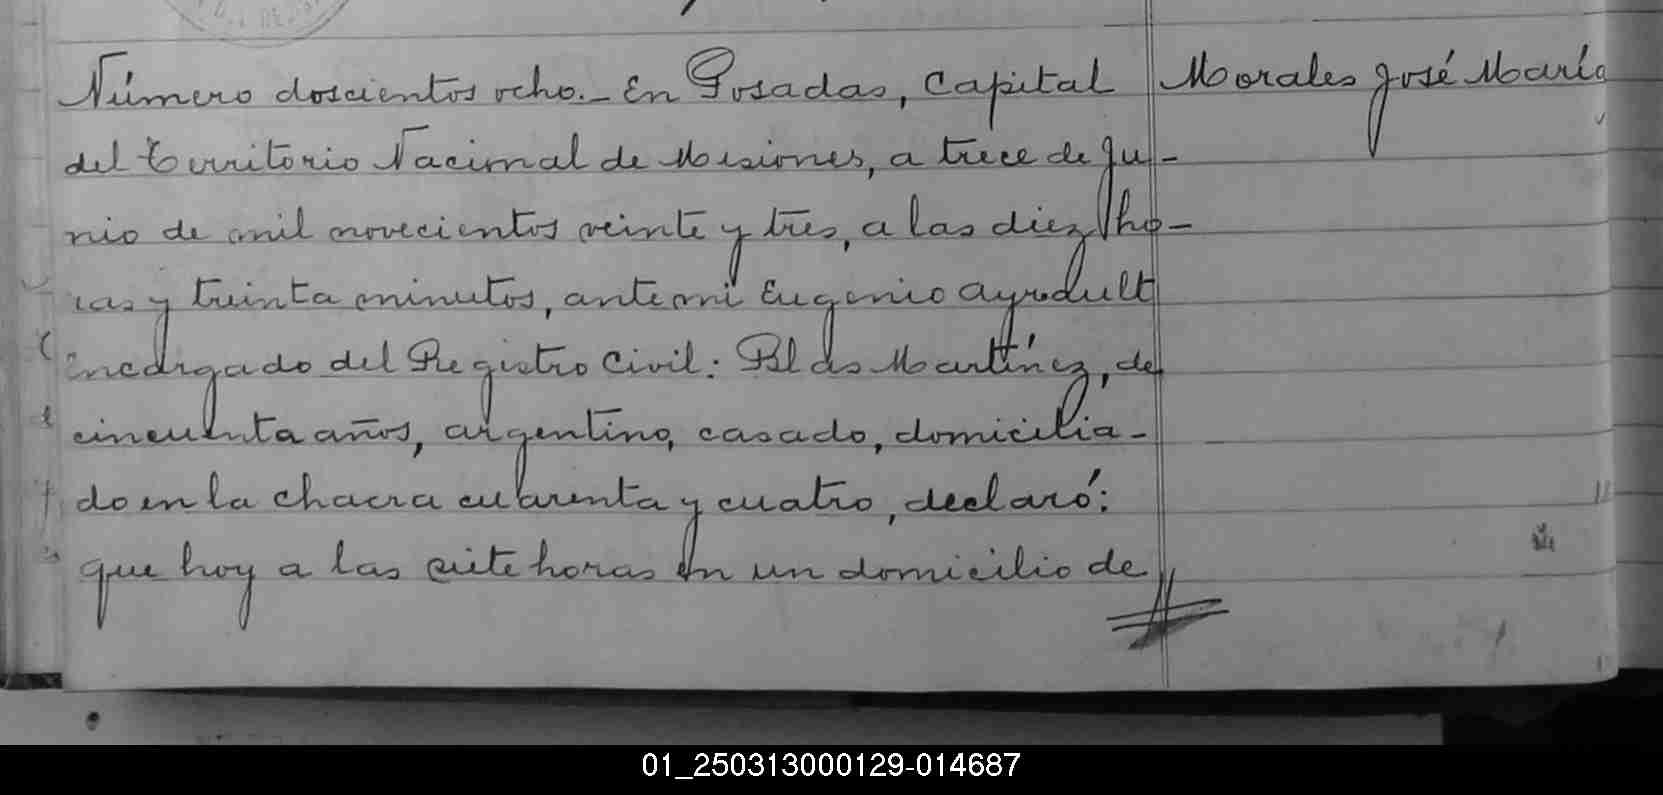 Número doscientos ocho._ En Posadas, Capital
Morales José María
del Territorio Nacional de Misiones, a trece de Ju-
nio de mil novecientos veinte y tres, a las diez ho-
ras y treinta minutos, ante mi Eugenio Ayrault
Encargado del Registro Civil: Blas Martínez, de
cincuenta años, argentino, casado, domicilia-
do en la chacra cuarenta y cuatro, declaró:
que hoy a las siete horas en un domicilio de
01_250313000129-014687